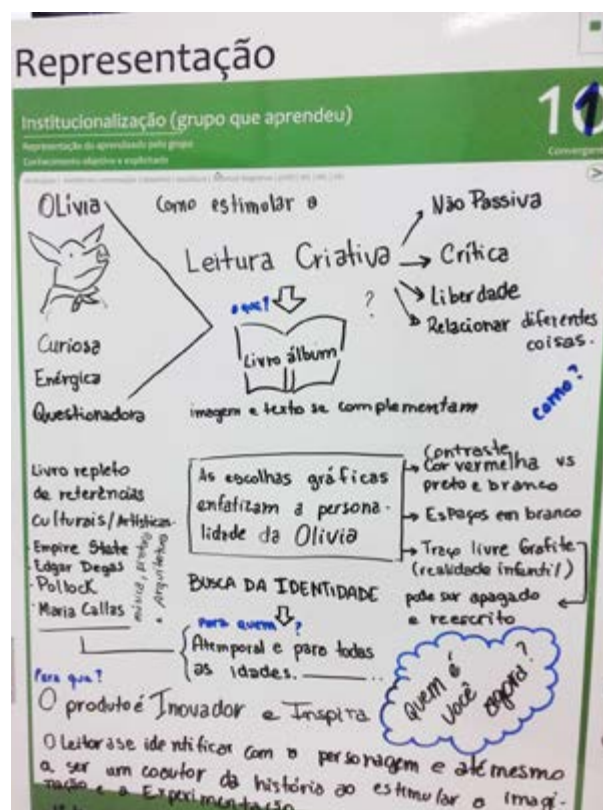 Representação
Institucionalização (grupo que aprendeu)
10
1
Representação do aprendizado pelo grupo
Conhecimento objetivo e explicitado
Olivia
Como estimular a
Leitura Criativa
Não Passiva
Crítica
Liberdade
Relacionar diferentes
coisas.
?
o que?
Livro álbum
Curiosa
Enérgica
Questionadora
imagem e texto se complementam
como?
Livro repleto
de referências
Culturais/Artísticas.
Empire State
Edgar Degas
Pollock
Maria Callas
música, pintura
e Arquitetura
As escolhas gráficas
enfatizam a persona-
lidade da Olivia
Contraste
Cor vermelha vs
preto e branco
Espaços em branco
Traço livre Grafite
(realidade infantil)
pode ser apagado
e reescrito
BUSCA DA IDENTIDADE
Para quem?
Atemporal e para todas
as idades.
Quem é
você
agora?
Para que?
O produto é Inovador e Inspira
O leitor a se identificar com o personagem e até mesmo
a ser um coautor da história ao estimular a imagi-
nação e a Experimentação